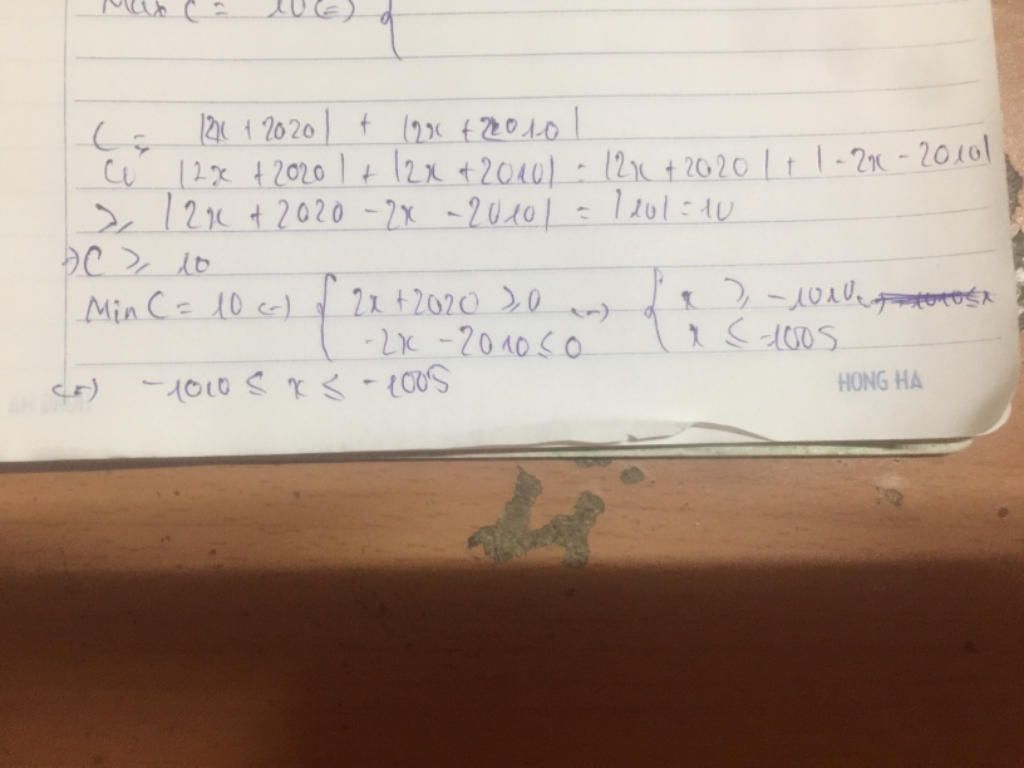 Max C = 10 (=) {
C = |2x + 2020| + |2x + 2010|
Có |2x + 2020| + |2x + 2010| = |2x + 2020| + |-2x - 2010|
≥ |2x + 2020 - 2x - 2010| = |10| = 10
=> C ≥ 10
Min C = 10 (=) { 2x + 2020 ≥ 0 (=) { x ≥ -1010
-2x - 2010 ≤ 0 x ≤ -1005
(=) -1010 ≤ x ≤ -1005
HONG HA